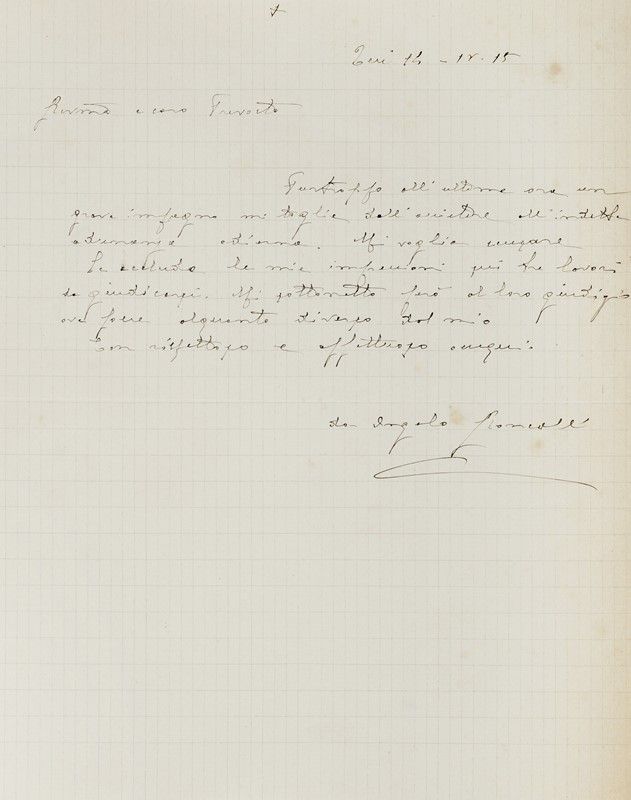 +
14 - IV. 15
Revmo e caro Prevosto
Purtroppo all'ultima ora un
grave impegno mi toglie dall'assistere all'indetta
adunanza odierna. Mi voglia scusare
Le accludo le mie impressioni sui tre lavori
da giudicarsi. Mi sottometto però al loro giudizio
ove fosse alquanto diverso dal mio
Con rispettoso e affettuoso ossequio.
Angelo Roncalli